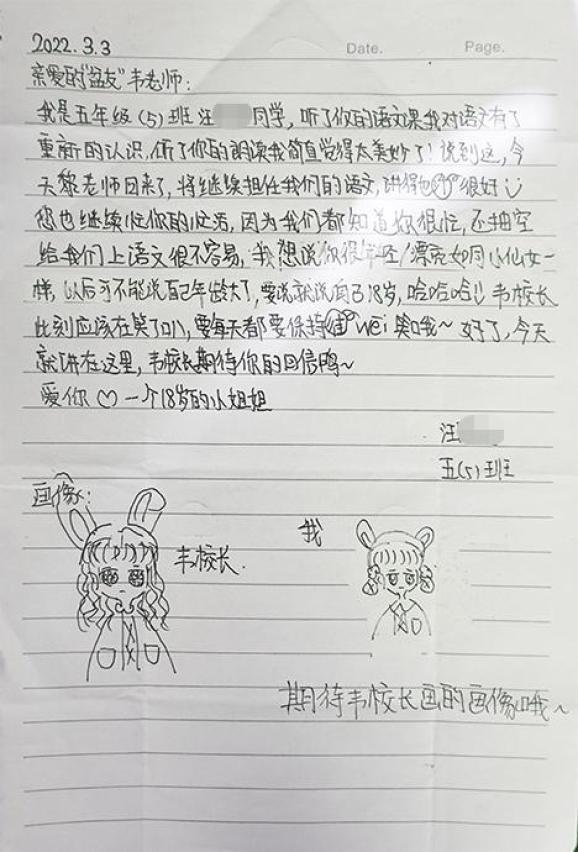 2022.3.3
Date.
Page.
亲爱的"盆友"韦老师：
我是五年级(5)班汪 同学，听了你的语文课我对语文有了
重新的认识，听了你的朗读我简直觉得太美妙了！说到这，今
天黎老师回来了，将继续担任我们的语文，讲得也很好
您也继续忙你的忙活，因为我们都知道您很忙，还抽空
给我们上语文很不容易，我想说你很年轻/漂亮如同小仙女一
样，以后可不能说自己年龄大了，要说就说自己18岁，哈哈哈！！韦校长
此刻应该在笑了叭，要每天都要保持 wei笑哦～好了，今天
就讲在这里，韦校长期待你的回信鸭～
爱你♡一个18岁的小姐姐
汪
五(5)班
画像：
韦校长.
我
期待韦校长画的画像哦～